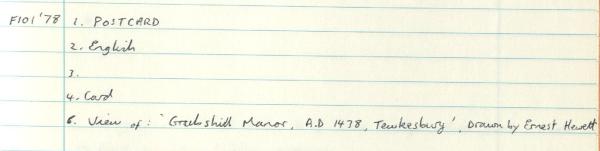 F101 '78 1. POSTCARD
2. English
3.
4. Card
6. View of: 'Grubshill Manor, A.D 1478, Tewkesbury', Drawn by Ernest Hewett